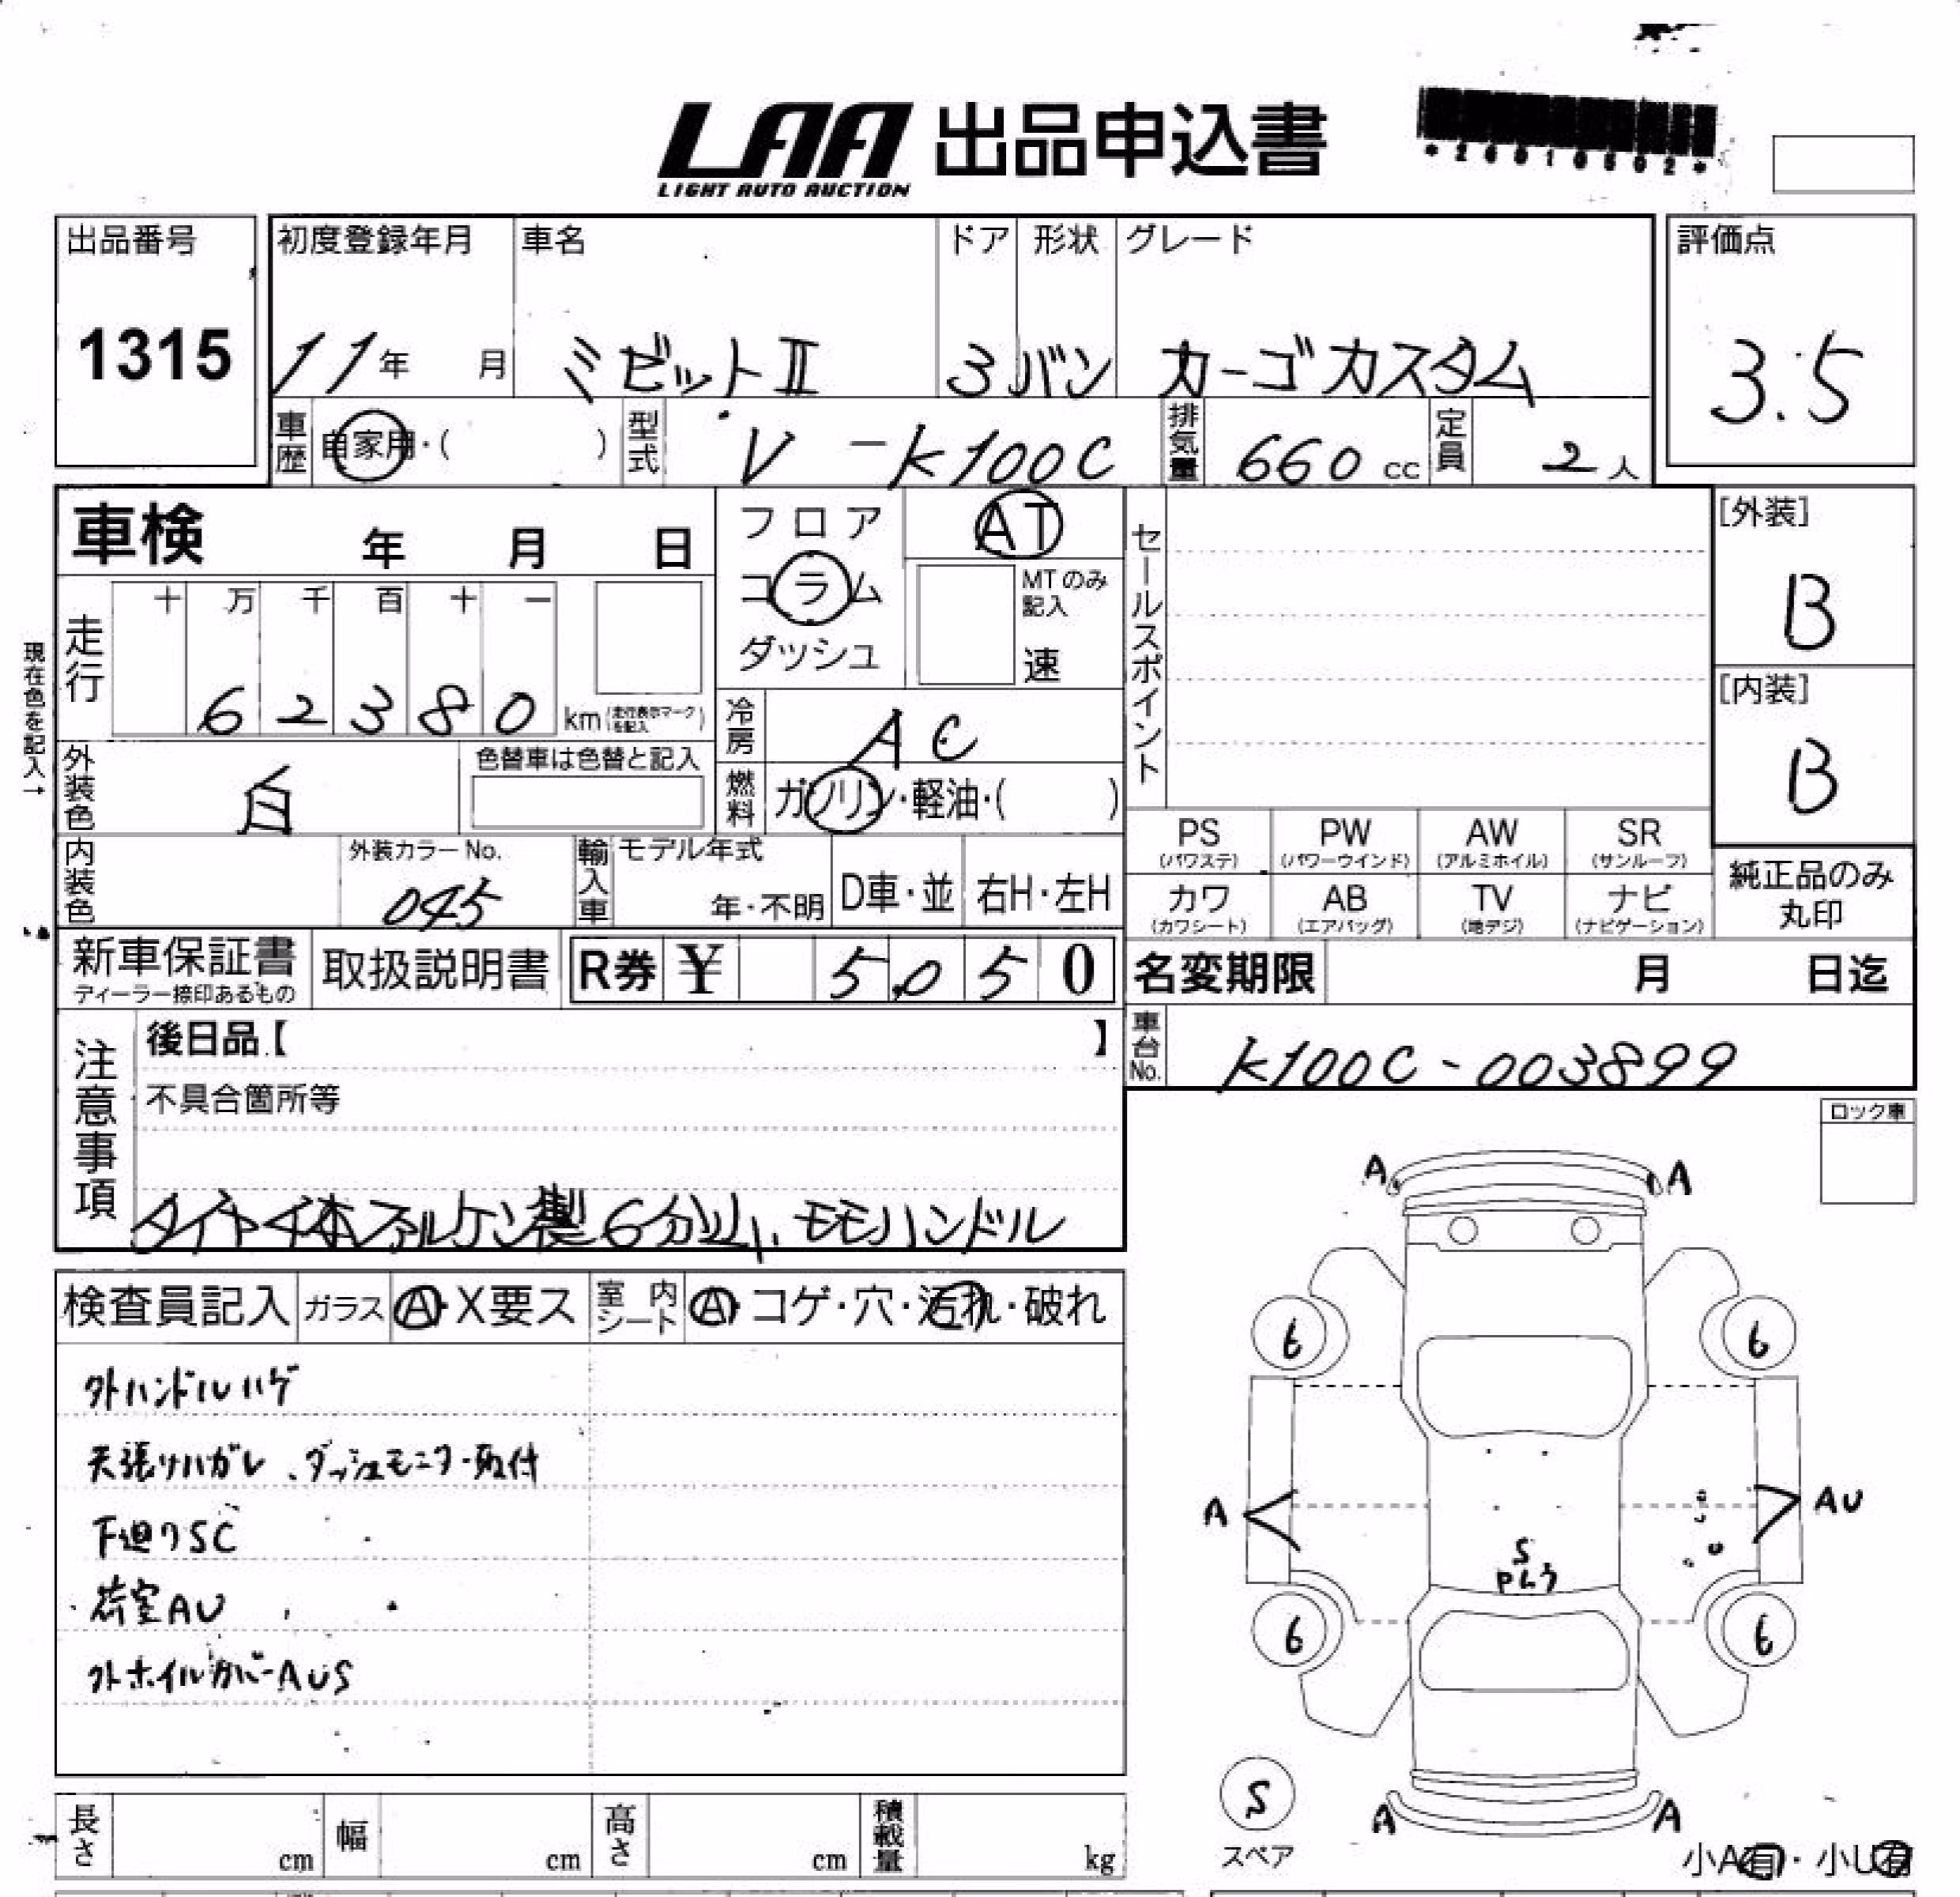 LAA 出品申込書
LIGHT AUTO AUCTION
*26010502*
出品番号
1315
初度登録年月
11年 月
車名
ミゼットⅡ
ドア
3
形状
バン
グレード
カーゴカスタム
評価点
3.5
車歴 自家用・( )
型式 V-K100C
排気量 660cc
定員 2人
車検 年 月 日
フロア
コラム
ダッシュ
AT
MTのみ記入
速
セールスポイント
[外装]
B
[内装]
B
現在色を記入→
走行
十 万 千 百 十 一
6 2 3 8 0 km (走行表示マークを記入)
冷房 AC
燃料 ガソリン・軽油・( )
外装色 白
色替車は色替と記入
内装色
外装カラーNo.
045
輸入車
モデル年式
年・不明
D車・並
右H・左H
PS (パワステ)
PW (パワーウインド)
AW (アルミホイル)
SR (サンルーフ)
カワ (カワシート)
AB (エアバッグ)
TV (地デジ)
ナビ (ナビゲーション)
純正品のみ
丸印
新車保証書
ディーラー捺印あるもの
取扱説明書
R券 ¥ 5,050
名変期限 月 日迄
車台No. K100C-003899
注意事項
後日品【 】
不具合箇所等
タイヤ4本ファルケン製6分以上、モモハンドル
ロック車
検査員記入
ガラス A・X要ス
室内シート A・コゲ・穴・汚れ・破れ
外ハンドルハゲ
天張りハガレ、ダッシュモニター取付
下廻りSC
荷室AU
外ホイルカバーAUS
A A
6 6
A AU
S
PLラ
6 6
S
スペア
A A
小A有・小U有
長さ cm
幅 cm
高さ cm
積載量 kg